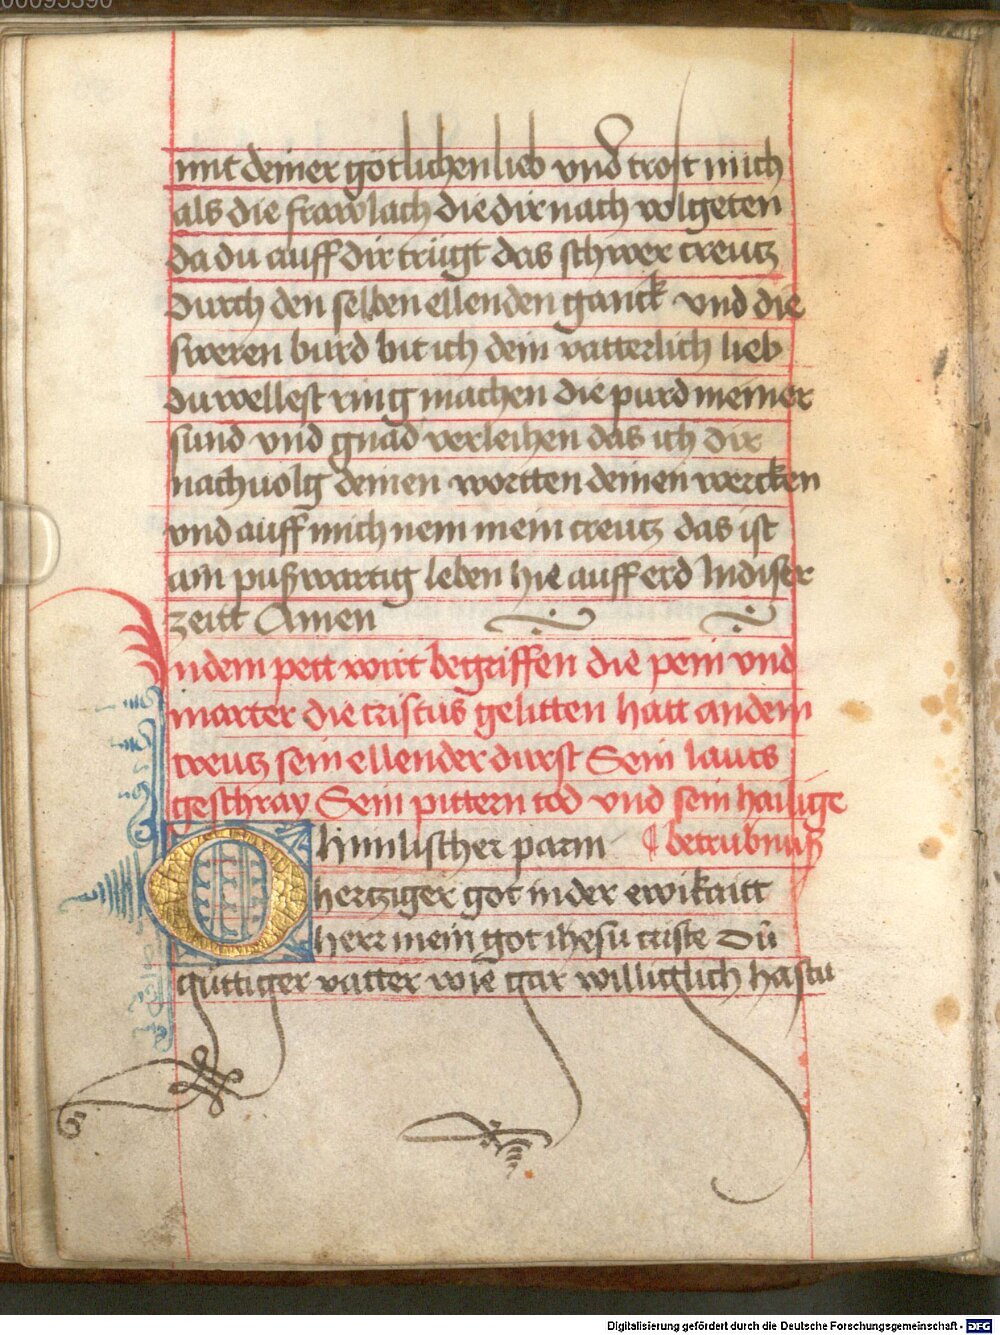 mit deiner götlichen lieb vnd trost mich
als die frawlach die dir nach volgeten
da du auff dir trügt das schwer creutz
durch den selben ellenden ganck vnd die
sweren burd bit ich dein vatterlich lieb
du wellest ring machen die purd meiner
sund vnd gnad verleihen das ich dir
nachuolg deinen wortten deinen wercken
vnd auff mich nem mein creutz das ist
ain pußwartig leben hie auff erd Indiser
zeitt Amen
Indem pett wirt begriffen die pein vnd
marter die cristus gelitten hatt andem
creutz sein ellender durst Sein lauts
geschray Sein pittern tod vnd sein hailige
¶ betrubnuß
O himlischer parm
hertziger got in der ewikaitt
herr mein got ihesu criste Dŭ
guttiger vatter wie gar willigtlich hastu
Digitalisierung gefördert durch die Deutsche Forschungsgemeinschaft - DFG